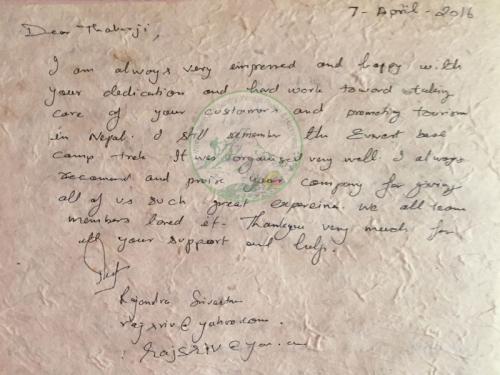 7 - April - 2016
Dear Thakurji,
I am always very empressed and happy with
your dedication and hard work toward taking
care of your customers and promoting tourism
in Nepal. I still remember the Everest base
camp trek. It was organised very well. I always
recomend and your company for giving
all of us such great we all team
members loved it. Thankyou very much for
all your support and help.
Rajendra
rajsriv@yahoo.com.